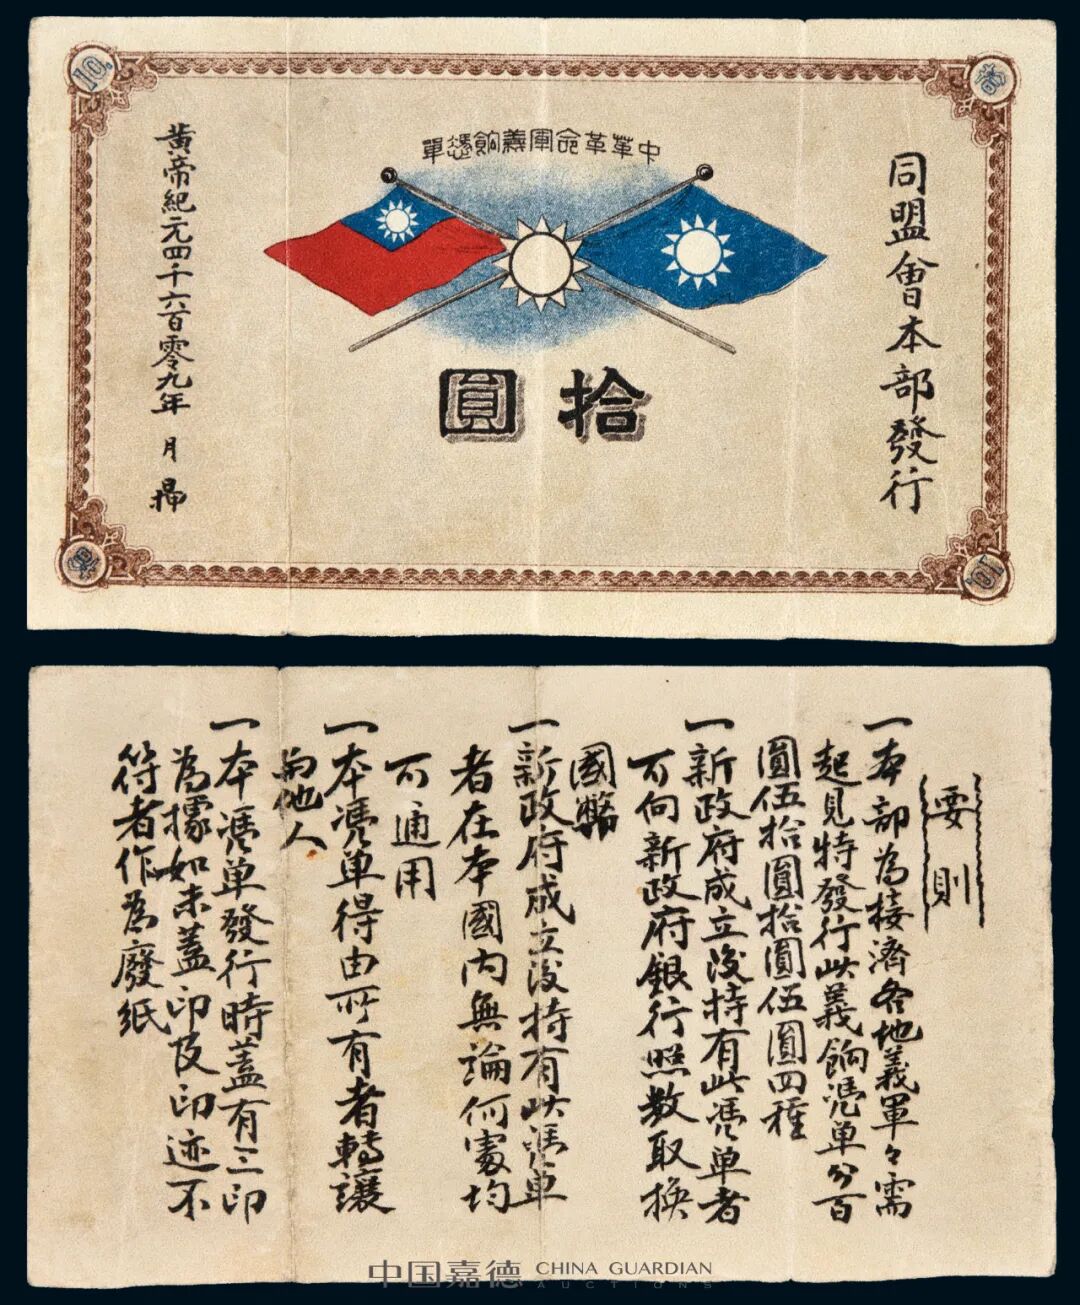 中華革命軍義餉憑單
同盟會本部發行
拾圓
黃帝紀元四千六百零九年 月
10
拾
圓
10
要則
一本部為接濟各地義軍々需
起見特發行此義餉憑單分百
圓伍拾圓拾圓伍圓四種
一新政府成立後持有此憑單者
可向新政府銀行照数取換
國幣
一新政府成立後持有此憑單
者在本國內無論何處均
可通用
一本憑單得由所有者轉讓
於他人
一本憑單發行時蓋有三印
為據如未蓋印及印迹不
符者作為廢紙
中国嘉德 CHINA GUARDIAN
AUCTIONS